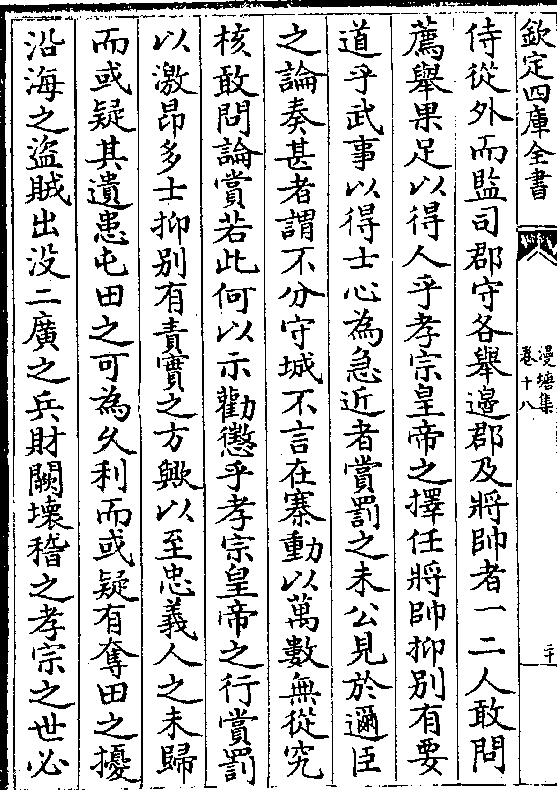 欽定四庫全書
漫塘集
卷十八
侍從外而監司郡守各舉邊郡及將帥者一二人敢問
薦舉果足以得人乎孝宗皇帝之擇任將帥抑别有要
道乎武事以得士心為急近者賞罰之未公見於邇臣
之論奏甚者謂不分守城不言在寨動以萬數無從究
核敢問論賞若此何以示勸懲乎孝宗皇帝之行賞罰
以激昂多士抑别有責實之方歟以至忠義人之未歸
而或疑其遺患屯田之可為久利而或疑有奪田之擾
沿海之盜賊出没二廣之兵財闕壞稽之孝宗之世必